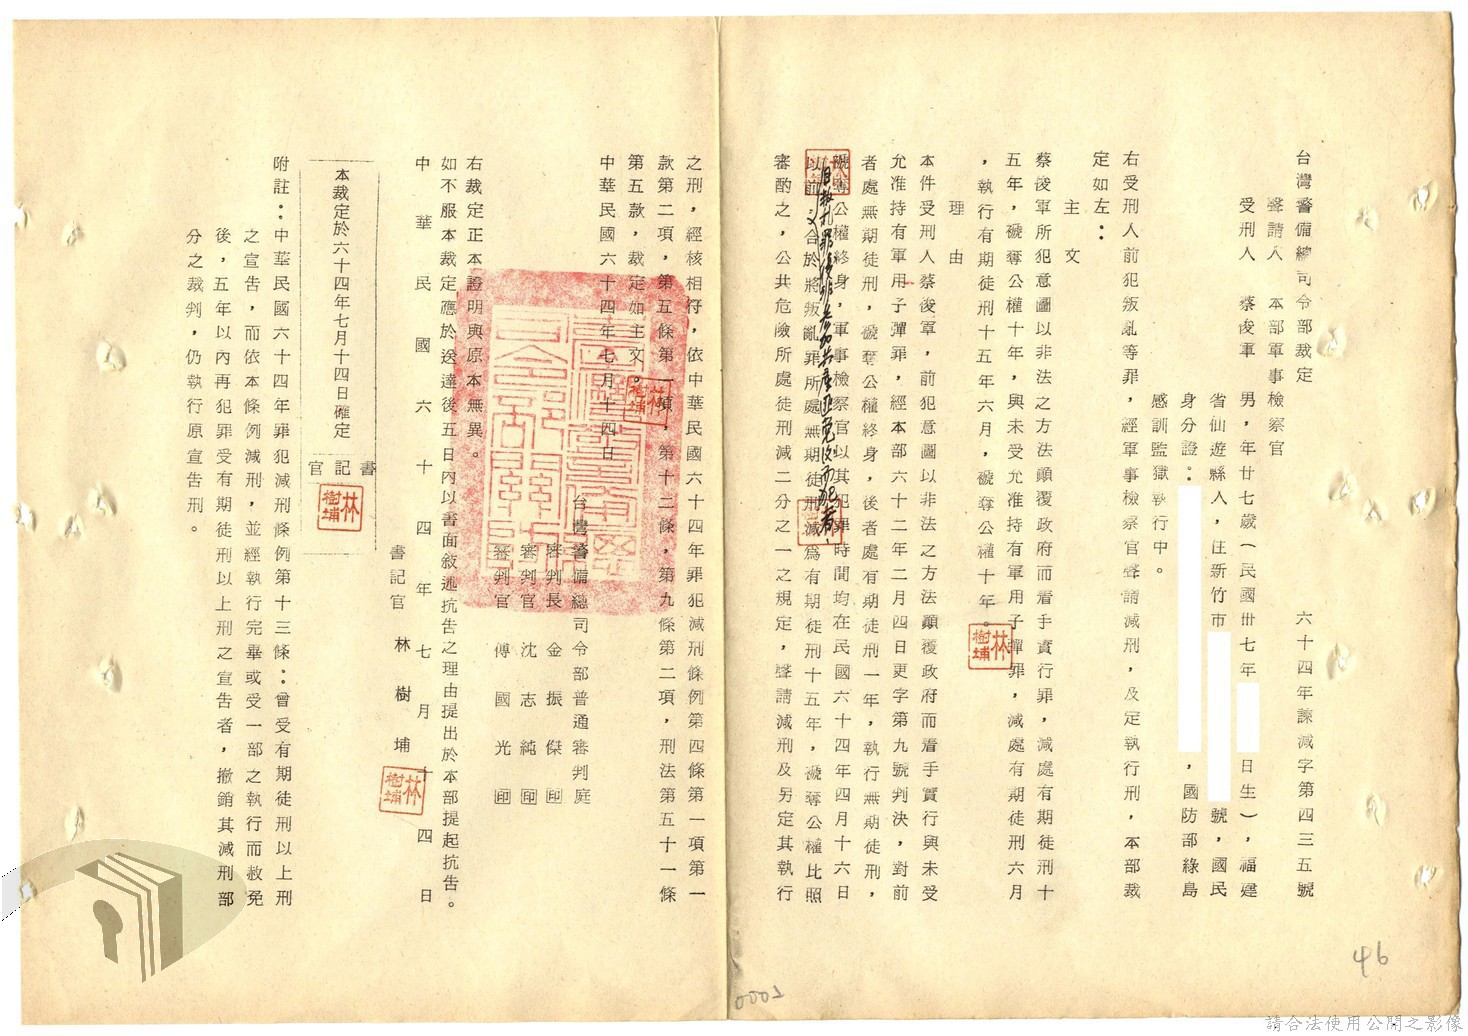 台灣警備總司令部裁定
六十四年諫減字第四三五號
聲請人　本部軍事檢察官
受刑人　蔡俊軍　男，年廿七歲（民國卅七年
日生），福建
省仙遊縣人，住新竹市
號，國民
身分證：
，國防部綠島
感訓監獄執行中。
右受刑人前犯叛亂等罪，經軍事檢察官聲請減刑，及定執行刑，本部裁
定如左：
主文
蔡俊軍所犯意圖以非法之方法顛覆政府而着手實行罪，減處有期徒刑十
五年，褫奪公權十年，與未受允准持有軍用子彈罪，減處有期徒刑六月
，執行有期徒刑十五年六月，褫奪公權十年。
理由
本件受刑人蔡俊軍，前犯意圖以非法之方法顛覆政府而着手實行與未受
允准持有軍用子彈罪，經本部六十二年二月四日更字第九號判決，對前
者處無期徒刑，褫奪公權終身，後者處有期徒刑一年，執行無期徒刑，
褫奪公權終身，軍事檢察官以其犯罪時間均在民國六十四年四月十六日
以前，又合於將叛亂罪所處無期徒刑減為有期徒刑十五年，褫奪公權比照
審酌之，公共危險所處徒刑減二分之一之規定，聲請減刑及另定其執行
之刑，經核相符，依中華民國六十四年罪犯減刑條例第四條第一項第一
款第二項，第五條第一項，第十二條，第九條第二項，刑法第五十一條
第五款，裁定如主文。
中華民國六十四年七月十四日
台灣警備總司令部普通審判庭
審判長　金振傑　印
審判官　沈志純　印
審判官　傅國光　印
右裁定正本證明與原本無異。
如不服本裁定應於送達後五日內以書面敘述抗告之理由提出於本部提起抗告。
中華民國六十四年七月十四日
書記官　林樹埔
林樹埔
本裁定於六十四年七月十四日確定
書記官
林樹埔
附註：中華民國六十四年罪犯減刑條例第十三條：曾受有期徒刑以上刑
之宣告，而依本條例減刑，並經執行完畢或受一部之執行而赦免
後，五年以內再犯罪受有期徒刑以上刑之宣告者，撤銷其減刑部
分之裁判，仍執行原宣告刑。
46
0001
請合法使用公開之影像